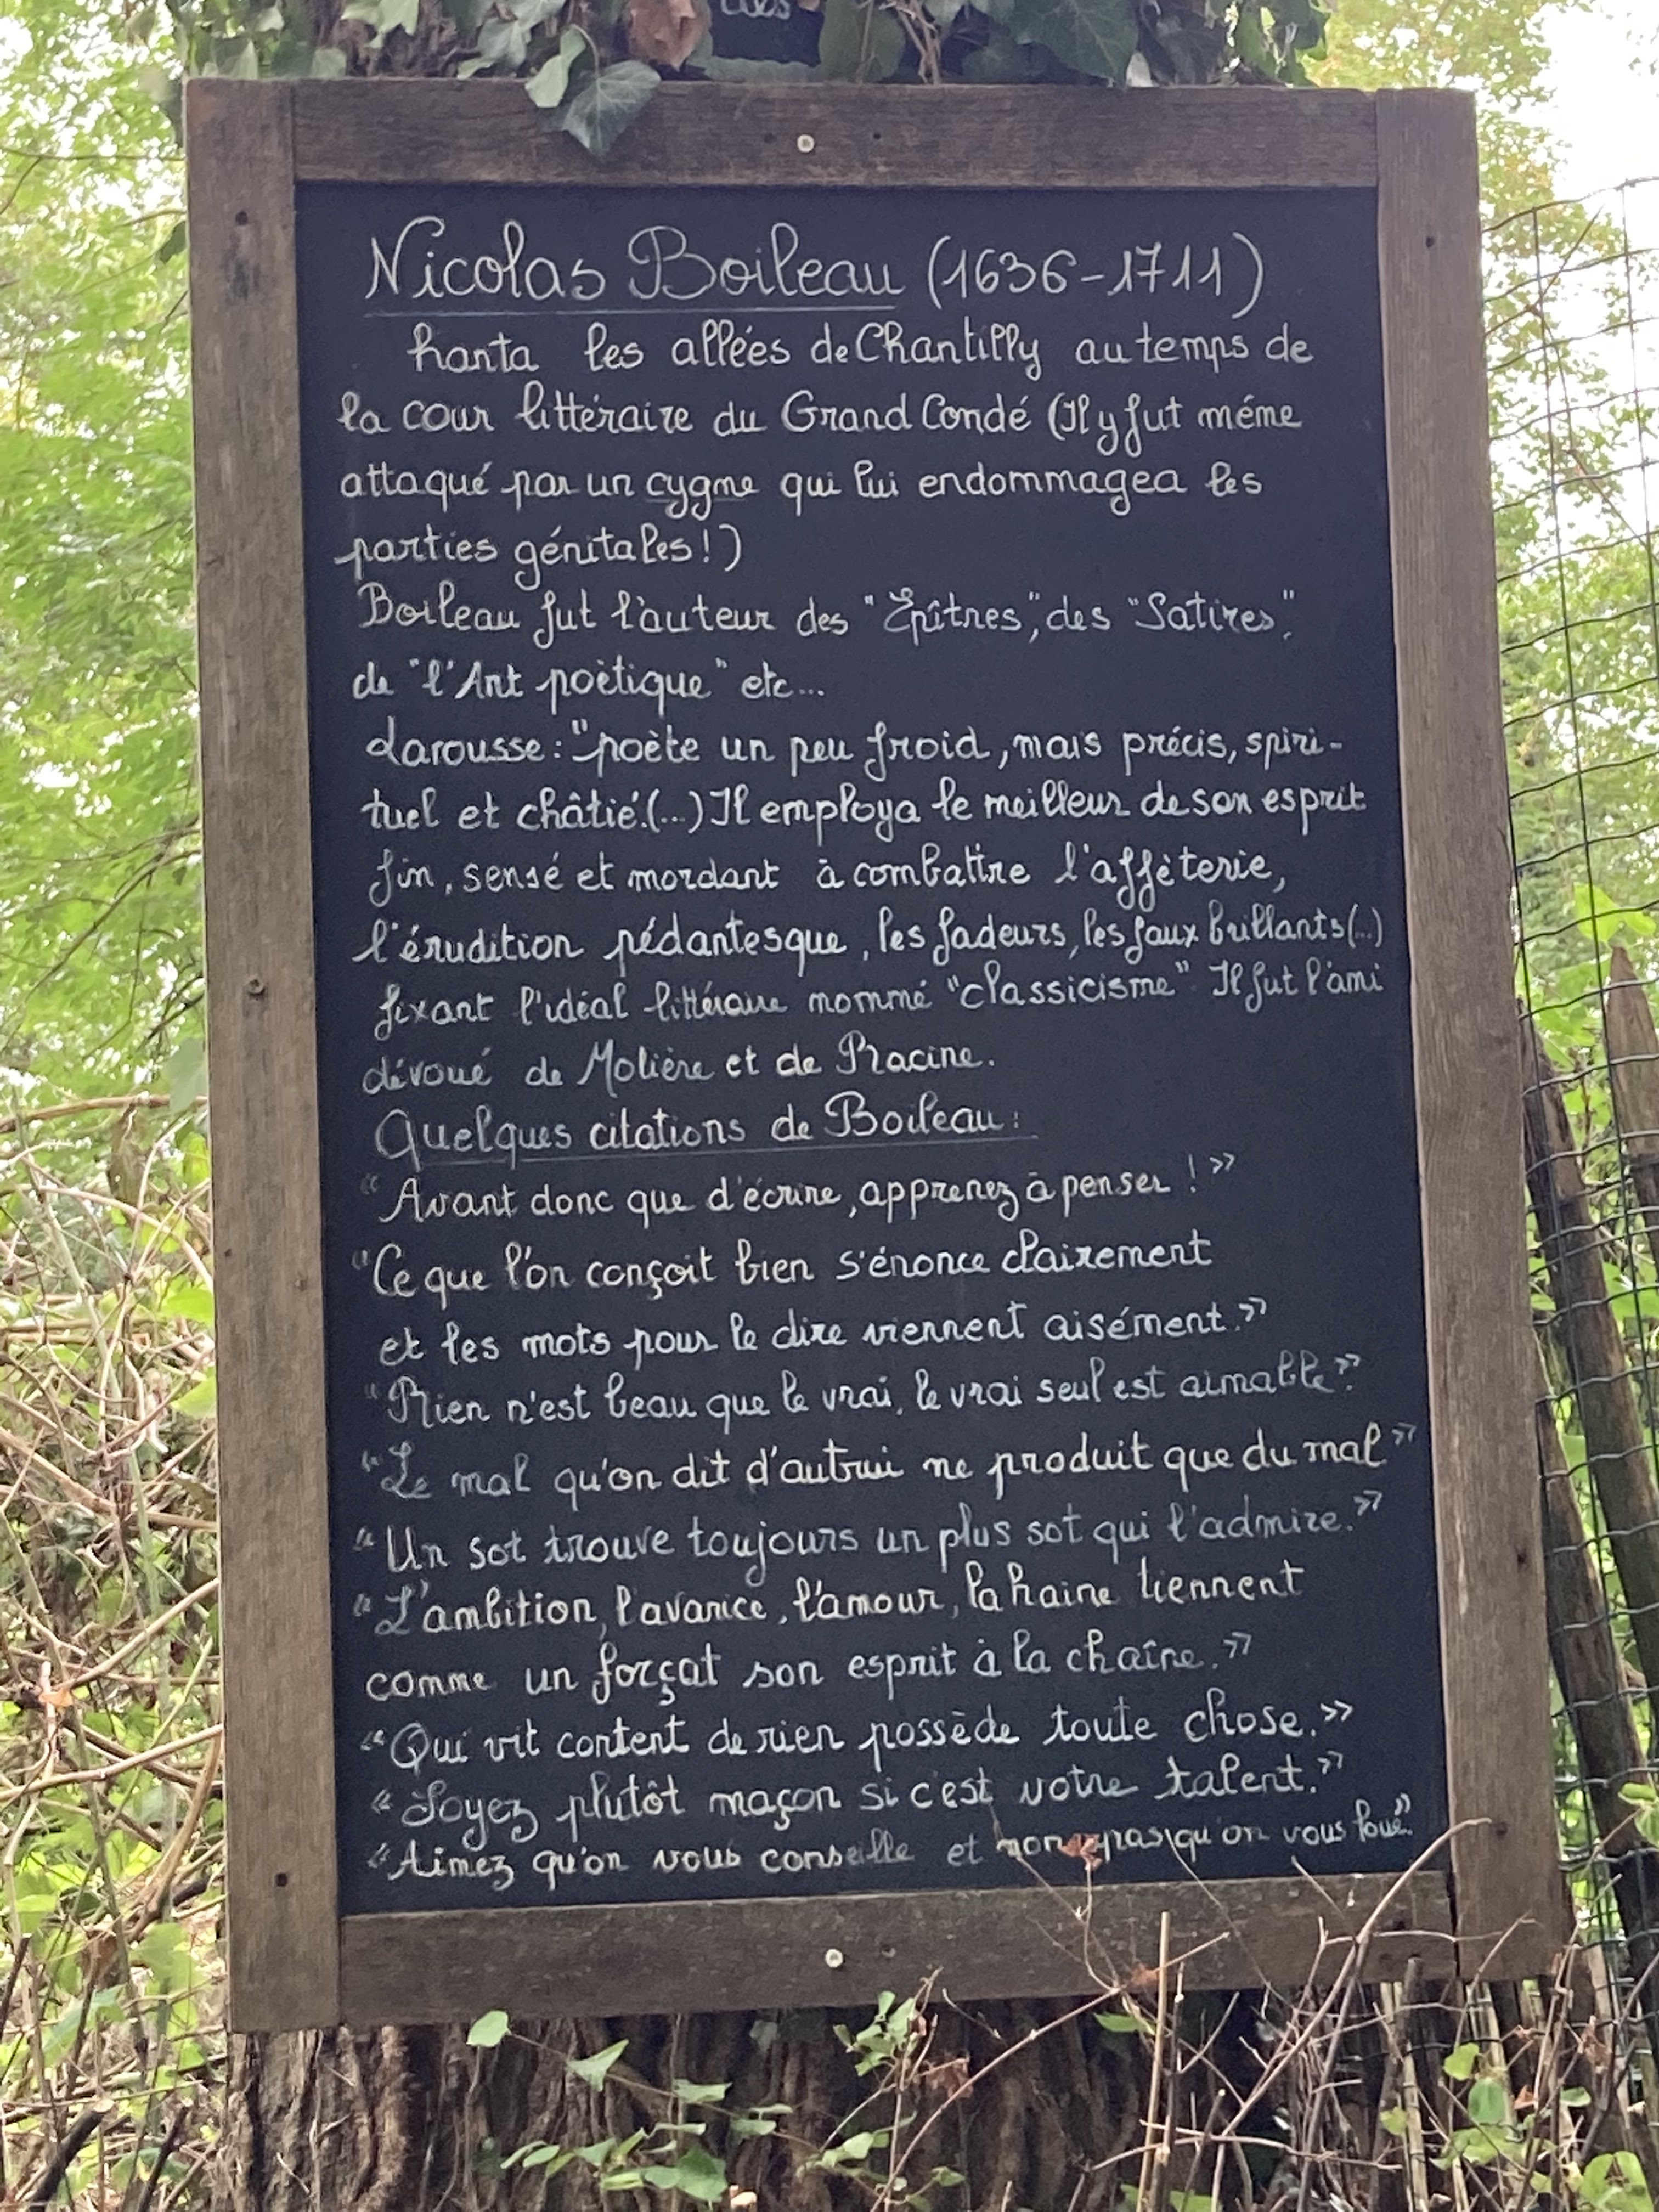 Nicolas Boileau (1636-1711)
hanta les allées de Chantilly au temps de
la cour littéraire du Grand Condé (Il y fut même
attaqué par un cygne qui lui endommagea les
parties génitales!)
Boileau fut l'auteur des "Epîtres", des "Satires",
de "l'Art poètique" etc...
Larousse: "poète un peu froid, mais précis, spiri-
tuel et châtié.(...) Il employa le meilleur de son esprit
fin, sensé et mordant à combattre l'affèterie,
l'érudition pédantesque, les fadeurs, les faux brillants(...)
fixant l'idéal littéraire nommé "classicisme". Il fut l'ami
dévoué de Molière et de Racine.
Quelques citations de Boileau:
"Avant donc que d'écrire, apprenez à penser !"
"Ce que l'on conçoit bien s'énonce clairement
et les mots pour le dire viennent aisément."
"Rien n'est beau que le vrai, le vrai seul est aimable."
"Le mal qu'on dit d'autrui ne produit que du mal."
"Un sot trouve toujours un plus sot qui l'admire."
"L'ambition, l'avarice, l'amour, la haine tiennent
comme un forçat son esprit à la chaîne."
"Qui vit content de rien possède toute chose."
"Soyez plutôt maçon si c'est votre talent."
"Aimez qu'on vous conseille et non pas qu'on vous loue."